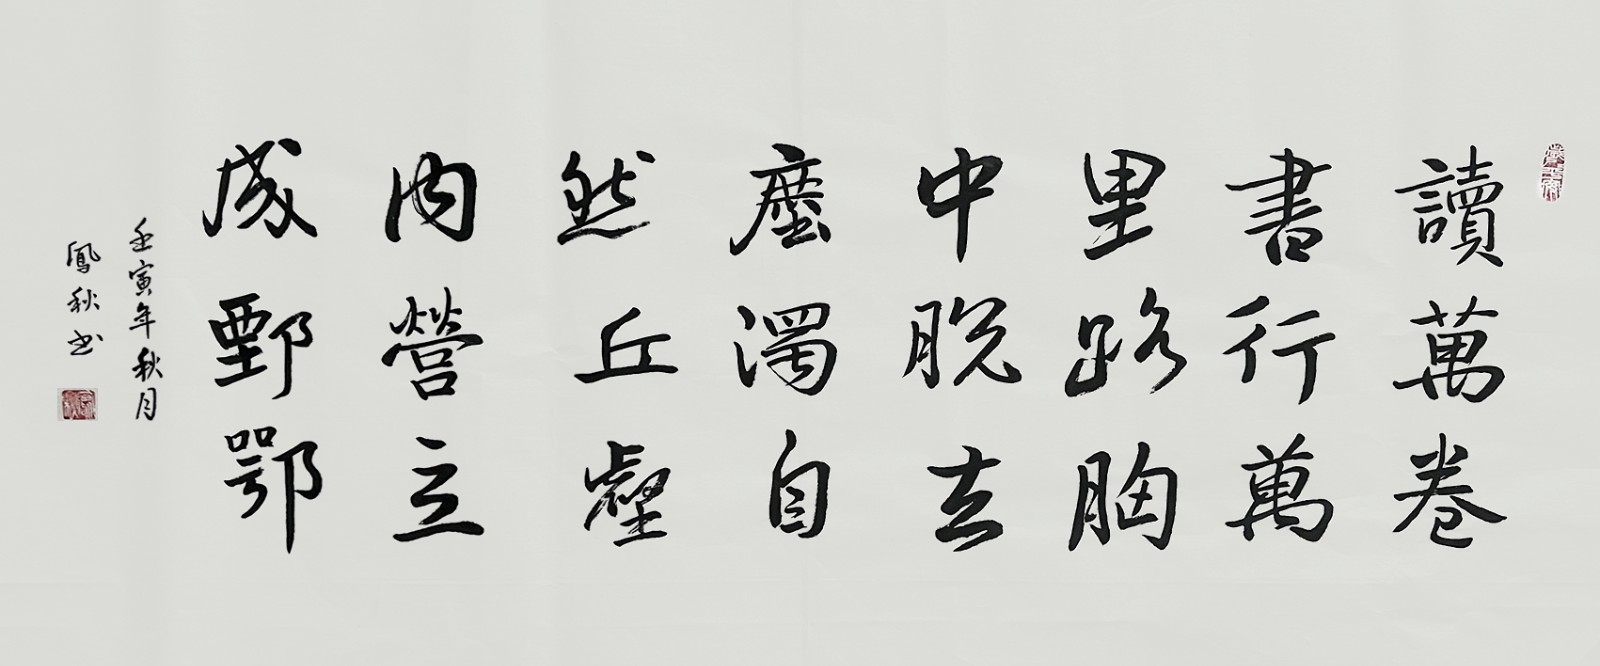 讀萬卷
書行萬
里路胸
中脱去
塵濁自
然丘壑
内營立
成鄄鄂
壬寅年秋月
鳳秋书